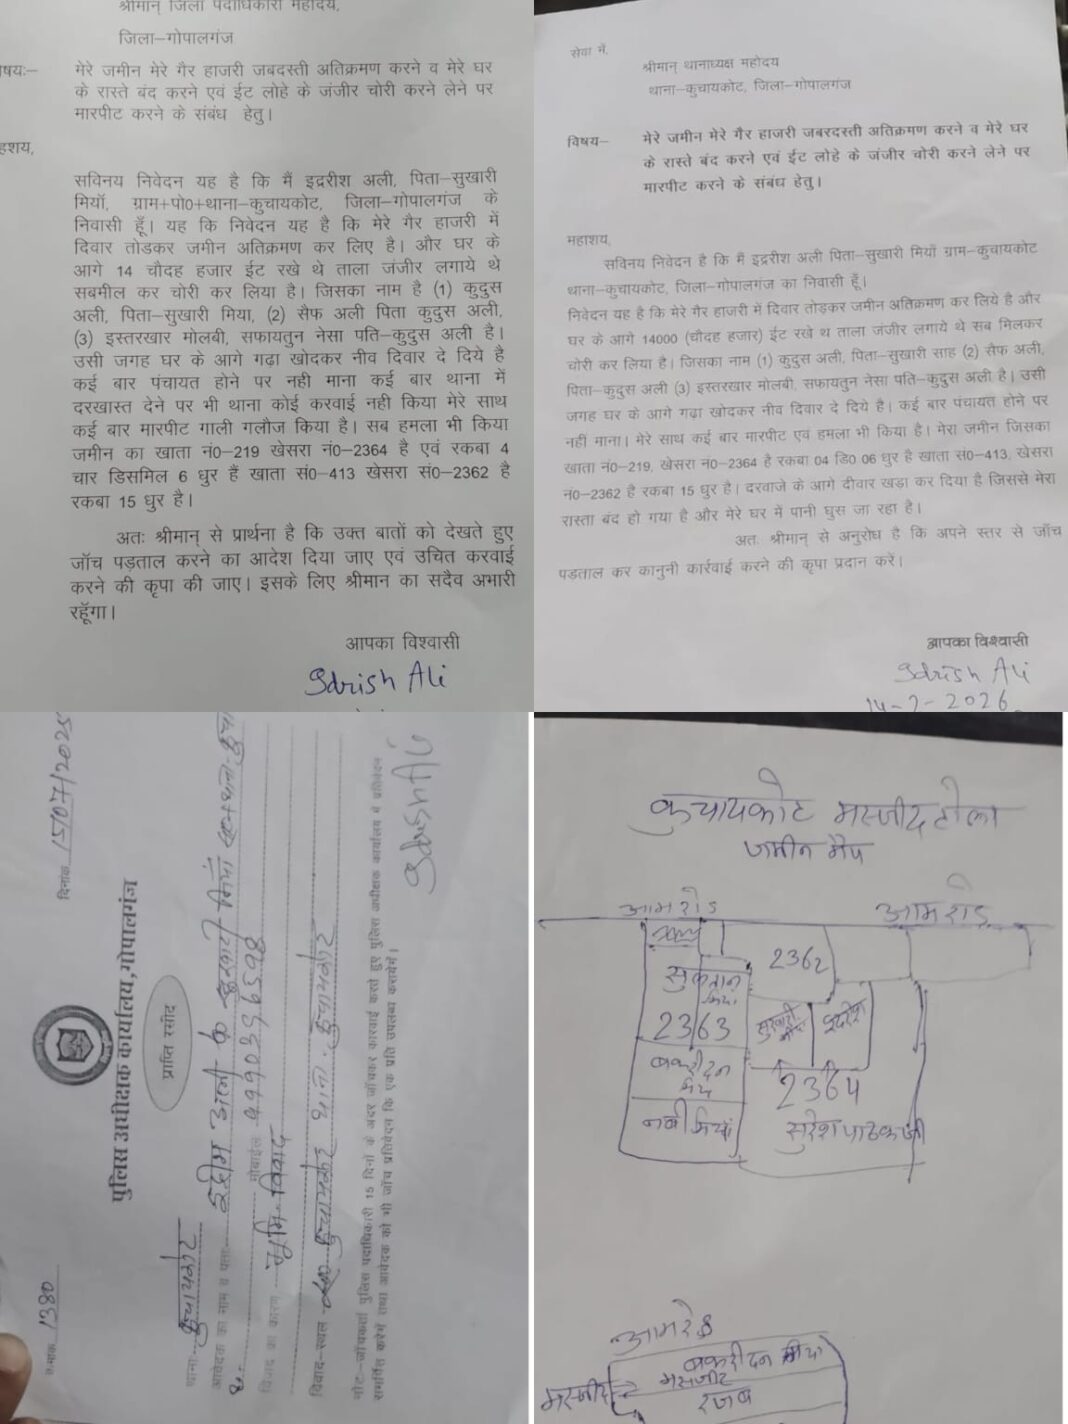 श्रीमान् जिला पदाधिकारी महोदय,
जिला–गोपालगंज
षयः– मेरे जमीन मेरे गैर हाजरी जबदस्ती अतिक्रमण करने व मेरे घर
के रास्ते बंद करने एवं ईट लोहे के जंजीर चोरी करने लेने पर
मारपीट करने के संबंध हेतु।
हशय,
सविनय निवेदन यह है कि मैं इद्ररीश अली, पिता–सुखारी
मियॉ, ग्राम+पो0+थाना–कुचायकोट, जिला–गोपालगंज के
निवासी हूँ। यह कि निवेदन यह है कि मेरे गैर हाजरी में
दिवार तोडकर जमीन अतिक्रमण कर लिए है। और घर के
आगे 14 चौदह हजार ईट रखे थे ताला जंजीर लगाये थे
सबमील कर चोरी कर लिया है। जिसका नाम है (1) कुदुस
अली, पिता–सुखारी मिया, (2) सैफ अली पिता कुदुस अली,
(3) इस्तरखार मोलबी, सफायतुन नेसा पति–कुदुस अली है।
उसी जगह घर के आगे गढा खोदकर नीव दिवार दे दिये है
कई बार पंचायत होने पर नही माना कई बार थाना में
दरखास्त देने पर भी थाना कोई करवाई नही किया मेरे साथ
कई बार मारपीट गाली गलौज किया है। सब हमला भी किया
जमीन का खाता नं0–219 खेसरा नं0–2364 है एवं रकबा 4
चार डिसमिल 6 धुर हैं खाता सं0–413 खेसरा सं0–2362 है
रकबा 15 धुर है।
अतः श्रीमान् से प्रार्थना है कि उक्त बातों को देखते हुए
जॉच पड़ताल करने का आदेश दिया जाए एवं उचित करवाई
करने की कृपा की जाए। इसके लिए श्रीमान का सदैव अभारी
रहूँगा।
आपका विश्वासी
Idrish Ali
सेवा में,
श्रीमान् थानाध्यक्ष महोदय
थाना–कुचायकोट, जिला–गोपालगंज
विषय– मेरे जमीन मेरे गैर हाजरी जबरदस्ती अतिक्रमण करने व मेरे घर
के रास्ते बंद करने एवं ईट लोहे के जंजीर चोरी करने लेने पर
मारपीट करने के संबंध हेतु।
महाशय,
सविनय निवेदन है कि मैं इद्ररीश अली पिता–सुखारी मियॉ ग्राम–कुचायकोट
थाना–कुचायकोट, जिला–गोपालगंज का निवासी हूँ।
निवेदन यह है कि मेरे गैर हाजरी में दिवार तोड़कर जमीन अतिक्रमण कर लिये है और
घर के आगे 14000 (चौदह हजार) ईट रखे थ ताला जंजीर लगाये थे सब मिलकर
चोरी कर लिया है। जिसका नाम (1) कुदुस अली, पिता–सुखारी साह (2) सैफ अली,
पिता–कुदुस अली (3) इस्तरखार मोलबी, सफायतुन नेसा पति–कुदुस अली है। उसी
जगह घर के आगे गढा खोदकर नीव दिवार दे दिये है। कई बार पंचायत होने पर
नहीं माना। मेरे साथ कई बार मारपीट एवं हमला भी किया है। मेरा जमीन जिसका
खाता नं0–219, खेसरा नं0–2364 है रकबा 04 डि0 06 धुर है खाता सं0–413, खेसरा
नं0–2362 है रकबा 15 धुर है। दरवाजे के आगे दीवार खड़ा कर दिया है जिससे मेरा
रास्ता बंद हो गया है और मेरे घर में पानी घुस जा रहा है।
अतः श्रीमान् से अनुरोध है कि अपने स्तर से जॉच
पड़ताल कर कानुनी कार्रवाई करने की कृपा प्रदान करें।
आपका विश्वासी
Idrish Ali
14-2-2026
1380
दिनांक 15/07/2025
पुलिस अधीक्षक कार्यालय, गोपालगंज
प्राप्ति रसीद
थानाः- कुचायकोट
आवेदक का नाम व पताः-
मोबाईल
विवाद का कारण भूमि-विवाद
विवाद–स्थल कुचायकोट थाना-कुचायकोट
Idrish Ali
कुचायकोट मस्जीद टोला
जमीन मैप
आम रोड आम रोड
सुकतान
मिया
2363
2362
सुखारी
इदरीश
बकरीदन
मिया
2364
नबी मियां
सुरेश पाठक जी
आम रोड
बकरीदन मीया
मस्जीद
मस्जीद
रजब